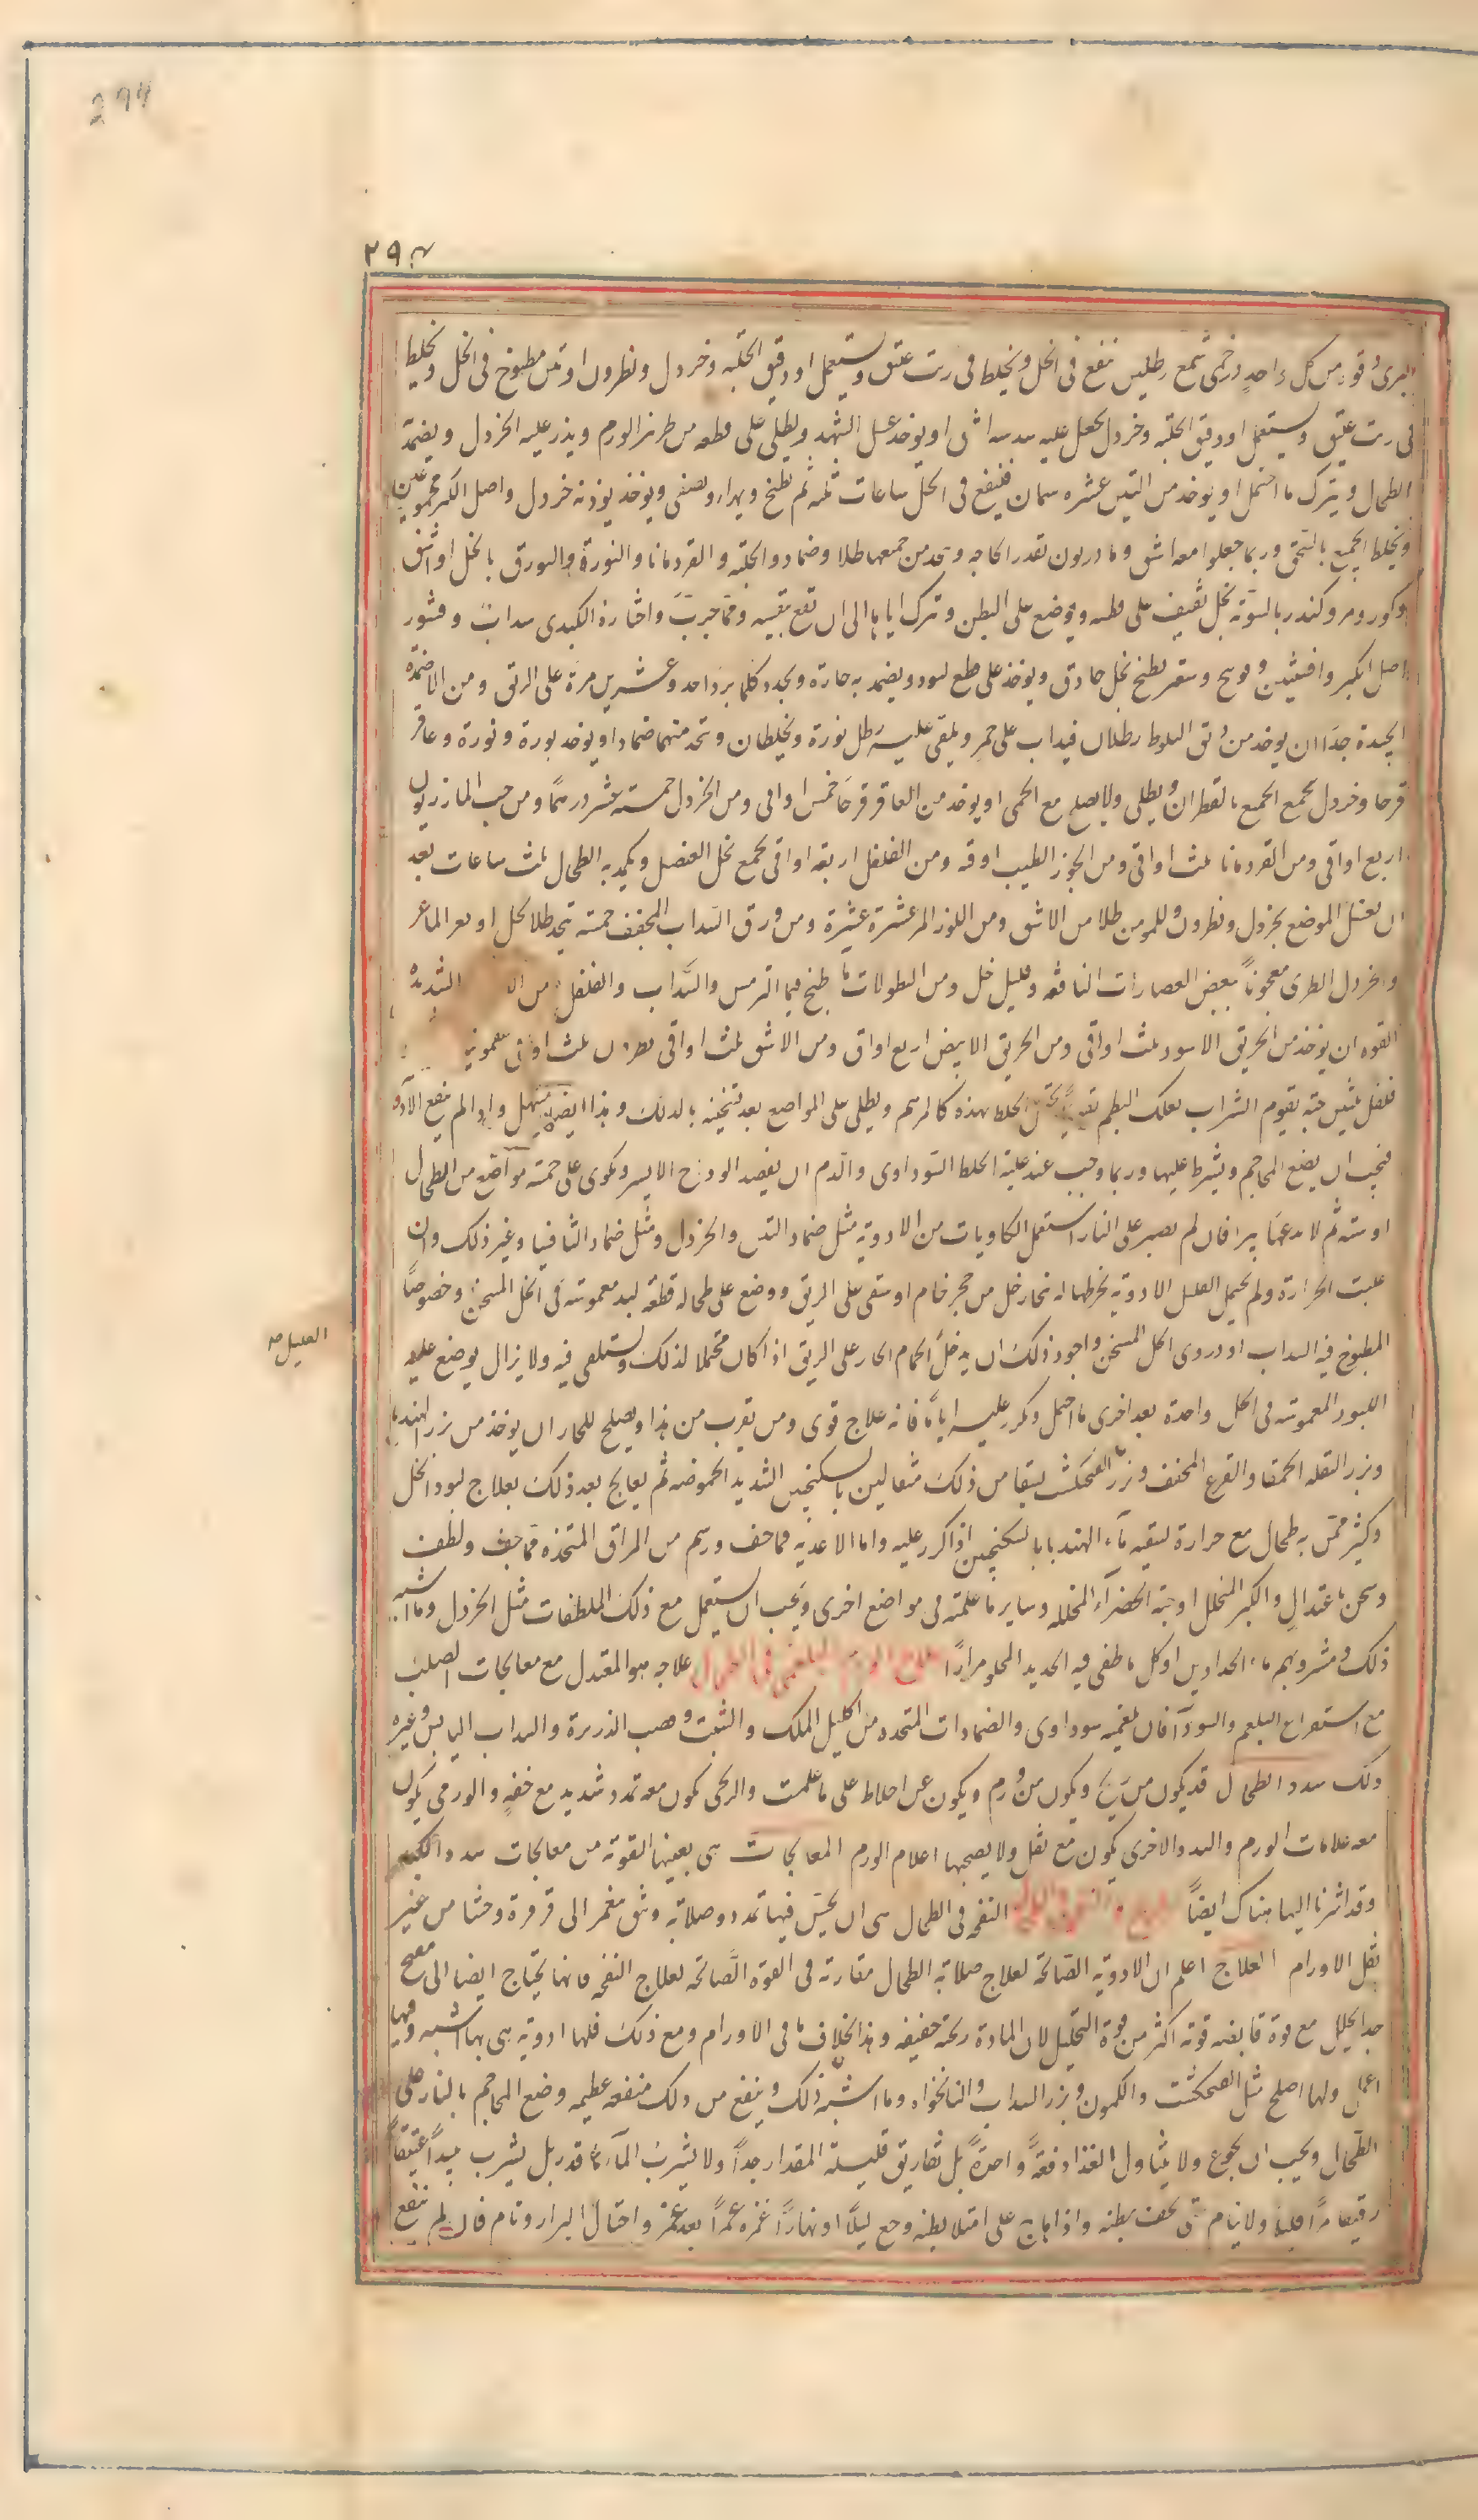 294
٢٩٤
البرى وقو من كل واحد درخمى شمع رطلين ينقع فى الخل ويخلط فى زيت عتيق ويستعمل او دقيق الحلبه وخردل ونطرون او تين مطبوخ فى الخل ويخلط
فى زيت عتيق ويستعمل او دقيق الحلبه وخردل يجعل عليه او يوخذ عسل الشهد ويطلى على قطعه من طرز الورم ويذر عليه الخردل ويضمد
الطحال ويترك ما احتمل او يوخذ من التين عشره سمان فينقع فى الخل ساعات ثلثه ثم يطبخ ويهراء ويصفى ويوخذ بوزنه خردل واصل الكبر مجموعين
ويخلط الجميع بالسحق وربما جعلوا معه اشق ومازريون بقدر الحاجه ويتخذ من جميعها طلا وضماد والحلبه والقردمانا والنورة والبورق بالخل او اشق
وكور ومر وكندر بالسوية بخل ثقيف على قطنه ويوضع على البطن وترك اياما الى ان تقع بنفسه ومما جرب واشاره الكبدى سداب وقشور
اصل الكبر وافسنتين وفوتنج وسعتر يطبخ بخل حاذق ويوخذ على قطع لبود ويضمد به حارة ويجدد كلما برد احد وعشرين مرة على الريق ومن الاضمدة
الجيدة جدا ان يوخذ من دبق البلوط رطلان فيذاب على جمر ويلقى عليه رطل نورة ويخلطان ويتخذ منهما ضمادا او يوخذ بورة ونورة وعاقر
قرحا وخردل يجمع الجميع بالقطران ويطلى ولا يصلح مع الحمى او يوخذ من العاقر قرحا خمس اواقى ومن الخردل خمسة عشر درهما ومن حب المازريون
اربع اواقى ومن القردمانا ثلث اواقى ومن الجوز الطيب اوقه ومن الفلفل اربعه اواقى يجمع بخل العنصل ويكمد به الطحال ثلث ساعات بعد
ان يغسل الموضع بخردل ونطرون طلا من الاشق ومن اللوز المر عشرة عشرة ومن ورق السداب المجفف خمسة يتخذ طلا بخل او بعر الماعز
والخردل الطرى معجونا ببعض العصارات النافعه وقليل خل ومن النطولات ما طبخ فيها الترمس والسداب والفلفل من الا الشديدة
القوه ان يوخذ من الخربق الاسود ثلث اواقى ومن الخربق الابيض اربع اواق ومن الاشق ثلث اواقى نطرون ثلث اواقى سقمونيا
فلفل ثلثين حبه بقوم الشراب بعلك البطم يخلط بهذه كالمرهم ويطلى على المواضع بعد تسخينه بالدلك وهذا ايضا يسهل واذا لم ينفع الادو
فيجب ان يضع المحاجم ويشرط عليها وربما وجب عند غلبة الخلط السوداوى والدم ان يفصد الوداج الايسر ويكوى على خمسة مواضع من الطحال
او ستة ثم لا يدعها يبرا فان لم يصبر على النار استعمل الكاويات من الادوية مثل ضماد التين والخردل ومثل ضماد الثافسيا وغير ذلك وان
غلبت الحرارة ولم يحتمل العليل الادويه بخرطها له بخار خل من حجر خام او سقى على الريق ووضع على طحاله قطعة لبد مغموسة فى الخل المسخن وخصوصا
المطبوخ فيه السداب او دردى الخل المسخن واجود ذلك ان يدخل الحمام الحار على الريق اذا كان محتملا لذلك ويستلقى فيه ولا يزال يوضع عليه
العليل صه
اللبود المغموسه فى الخل واحدة بعد اخرى ما احتمل وكرر عليه اياما فانه علاج قوى ومن تقرب من هذا ويصلح للحار ان يوخذ من بزر الهندبا
وبزر البقله الحمقا والقرع المجفف وبزر الفنجنكشت يسقا من ذلك مثقالين بالسكنجبين الشديد الحموضه ثم يعالج بعد ذلك بعلاج لبود الخل
وكثير ممن به طحال مع حرارة يسقيه مآء الهندبا بالسكنجبين اذا كرر عليه واما الاغذيه فما خف ودسم من المراق المتخذه مما خف ولطف
وسخن باعتدال والكبر المخلل او حبة الخضرآء المخلله وساير ما علمته فى مواضع اخرى ويجب ان يستعمل مع ذلك الملطفات مثل الخردل وما اشبه
ذلك ومشروبهم مآء الحدادين او كل ما طفى فيه الحديد المحلو مرارا علاج الورم البلغمى فى الطحال علاجه هو المعتدل مع معالجات الصلب
مع استفراغ البلغم والسودآ فان بلغميه سوداوى والضمادات المتخذه من اكليل الملك والشبت وقصب الذريرة والسداب اليابس وغيره
ذلك سدد الطحال قد يكون من ريح ويكون من ورم ويكون عن اخلاط على ما علمت والريحى يكون معه تمدد شديد مع خفه والورمى يكون
معه علامات الورم والسدد الاخرى يكون مع ثقل ولا يصحبها اعلام الورم المعالجات هى بعينها القوية من معالجات سدد الكبد
وقد اشرنا اليها هناك ايضا النفخه فى الطحال هى ان يحس فيها تمدد وصلابه وشى مغمز الى قرقرة وجشا من غير
ثقل الاورام العلاج اعلم ان الادويه الصالحة لعلاج صلابه الطحال مقاربة فى القوه الصالحه لعلاج النفخه فانها يحتاج ايضا الى
جد الخليل مع قوة قابضه قوته اكثر من قوة التحليل لان المادة ريحيه خفيفه وهذا بخلاف ما فى الاورام ومع ذلك فلها ادويه هى بها اشبه وفيها
اعمل ولها اصلح مثل الفنجنكشت والكمون وبزر السداب والنانخواه وما اشبه ذلك وينفع من ذلك منفعه عظيمه وضع المحاجم بالنار على
الطحال ويجب ان يجوع ولا يتناول الغذا دفعة واحدة بل تفاريق قليلة المقدار جدا ولا يشرب المآء ما قدر بل يشرب نبيذا عتيقا
رقيقا مرا قليلا ولا ينام حتى يجف بطنه واذا هاج على امتلا بطنه وجع ليلا او نهارا غمزه غمزا بعد غمز واحتال البراز ونام فان لم ينفع